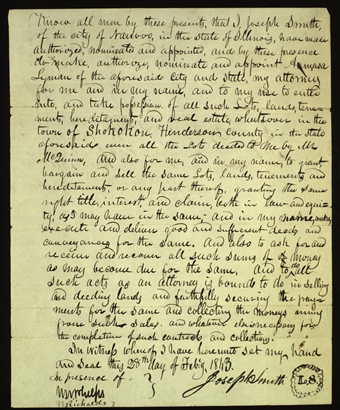 Know all men by these presents, that I, Joseph Smith,
of the city of Nauvoo, in the state of Illinois, have made
authorized, nominated and appointed, and by these presence
do make, authorize, nominate and appoint Amasa
Lyman of the aforesaid city and state, my attorney
for me and in my name, and to my use to enter
into, and take possession of all such Lots, lands, tene-
ment, hereditament, and real estate, whatsover in the
town of Shokokon, Henderson county in the state
aforesaid even all the Lots deeded to me by Mr
McQuinn, And also for me, and in my name, to grant
bargain and sell the same Lots, lands, tenements and
hereditament, or any part thereof, granting the same
right title, interest and claim, both in law and equi-
ty, as I may have in the same,- and in my name, make,
execute and deliver good and sufficient deeds and
conveyances for the same. And also to ask for and
receive and recover all such sums of money
as may become due for the same, And to all
such acts as an attorney is bound to do in selling
and deeding lands, and faithfully securing the pay-
ments for the same and collecting the moneys arising
from such sales. and whatever is necessary for
the completion of such contracts and collections.
In witness whereof I have hereunto set my hand
and seal this 28th day of Feb'y 1843.
in presence of
Joseph Smith
LS
W W Phelps
W Richards